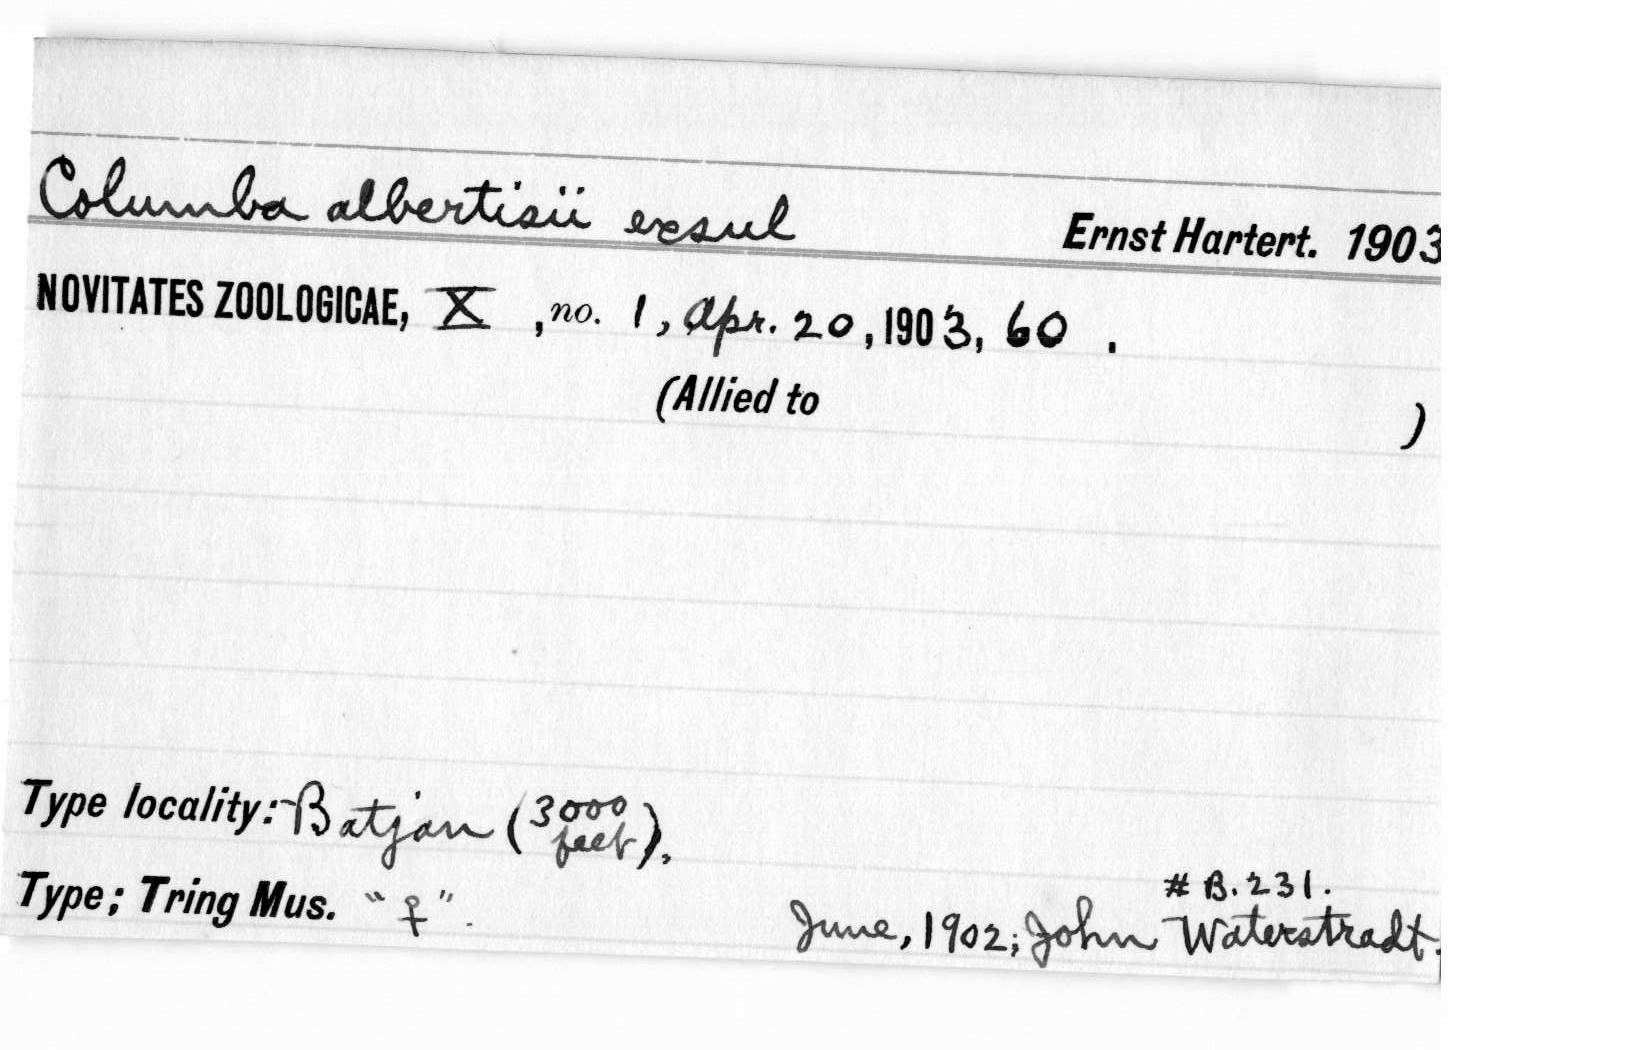 Columba albertisii exsul Ernst Hartert. 1903
NOVITATES ZOOLOGICAE, X , no. 1, Apr. 20, 1903, 60 .
(Allied to )
Type locality:- Batjan (3000 feet).
Type; Tring Mus. "♀". # B.231.
June, 1902; John Waterstradt.